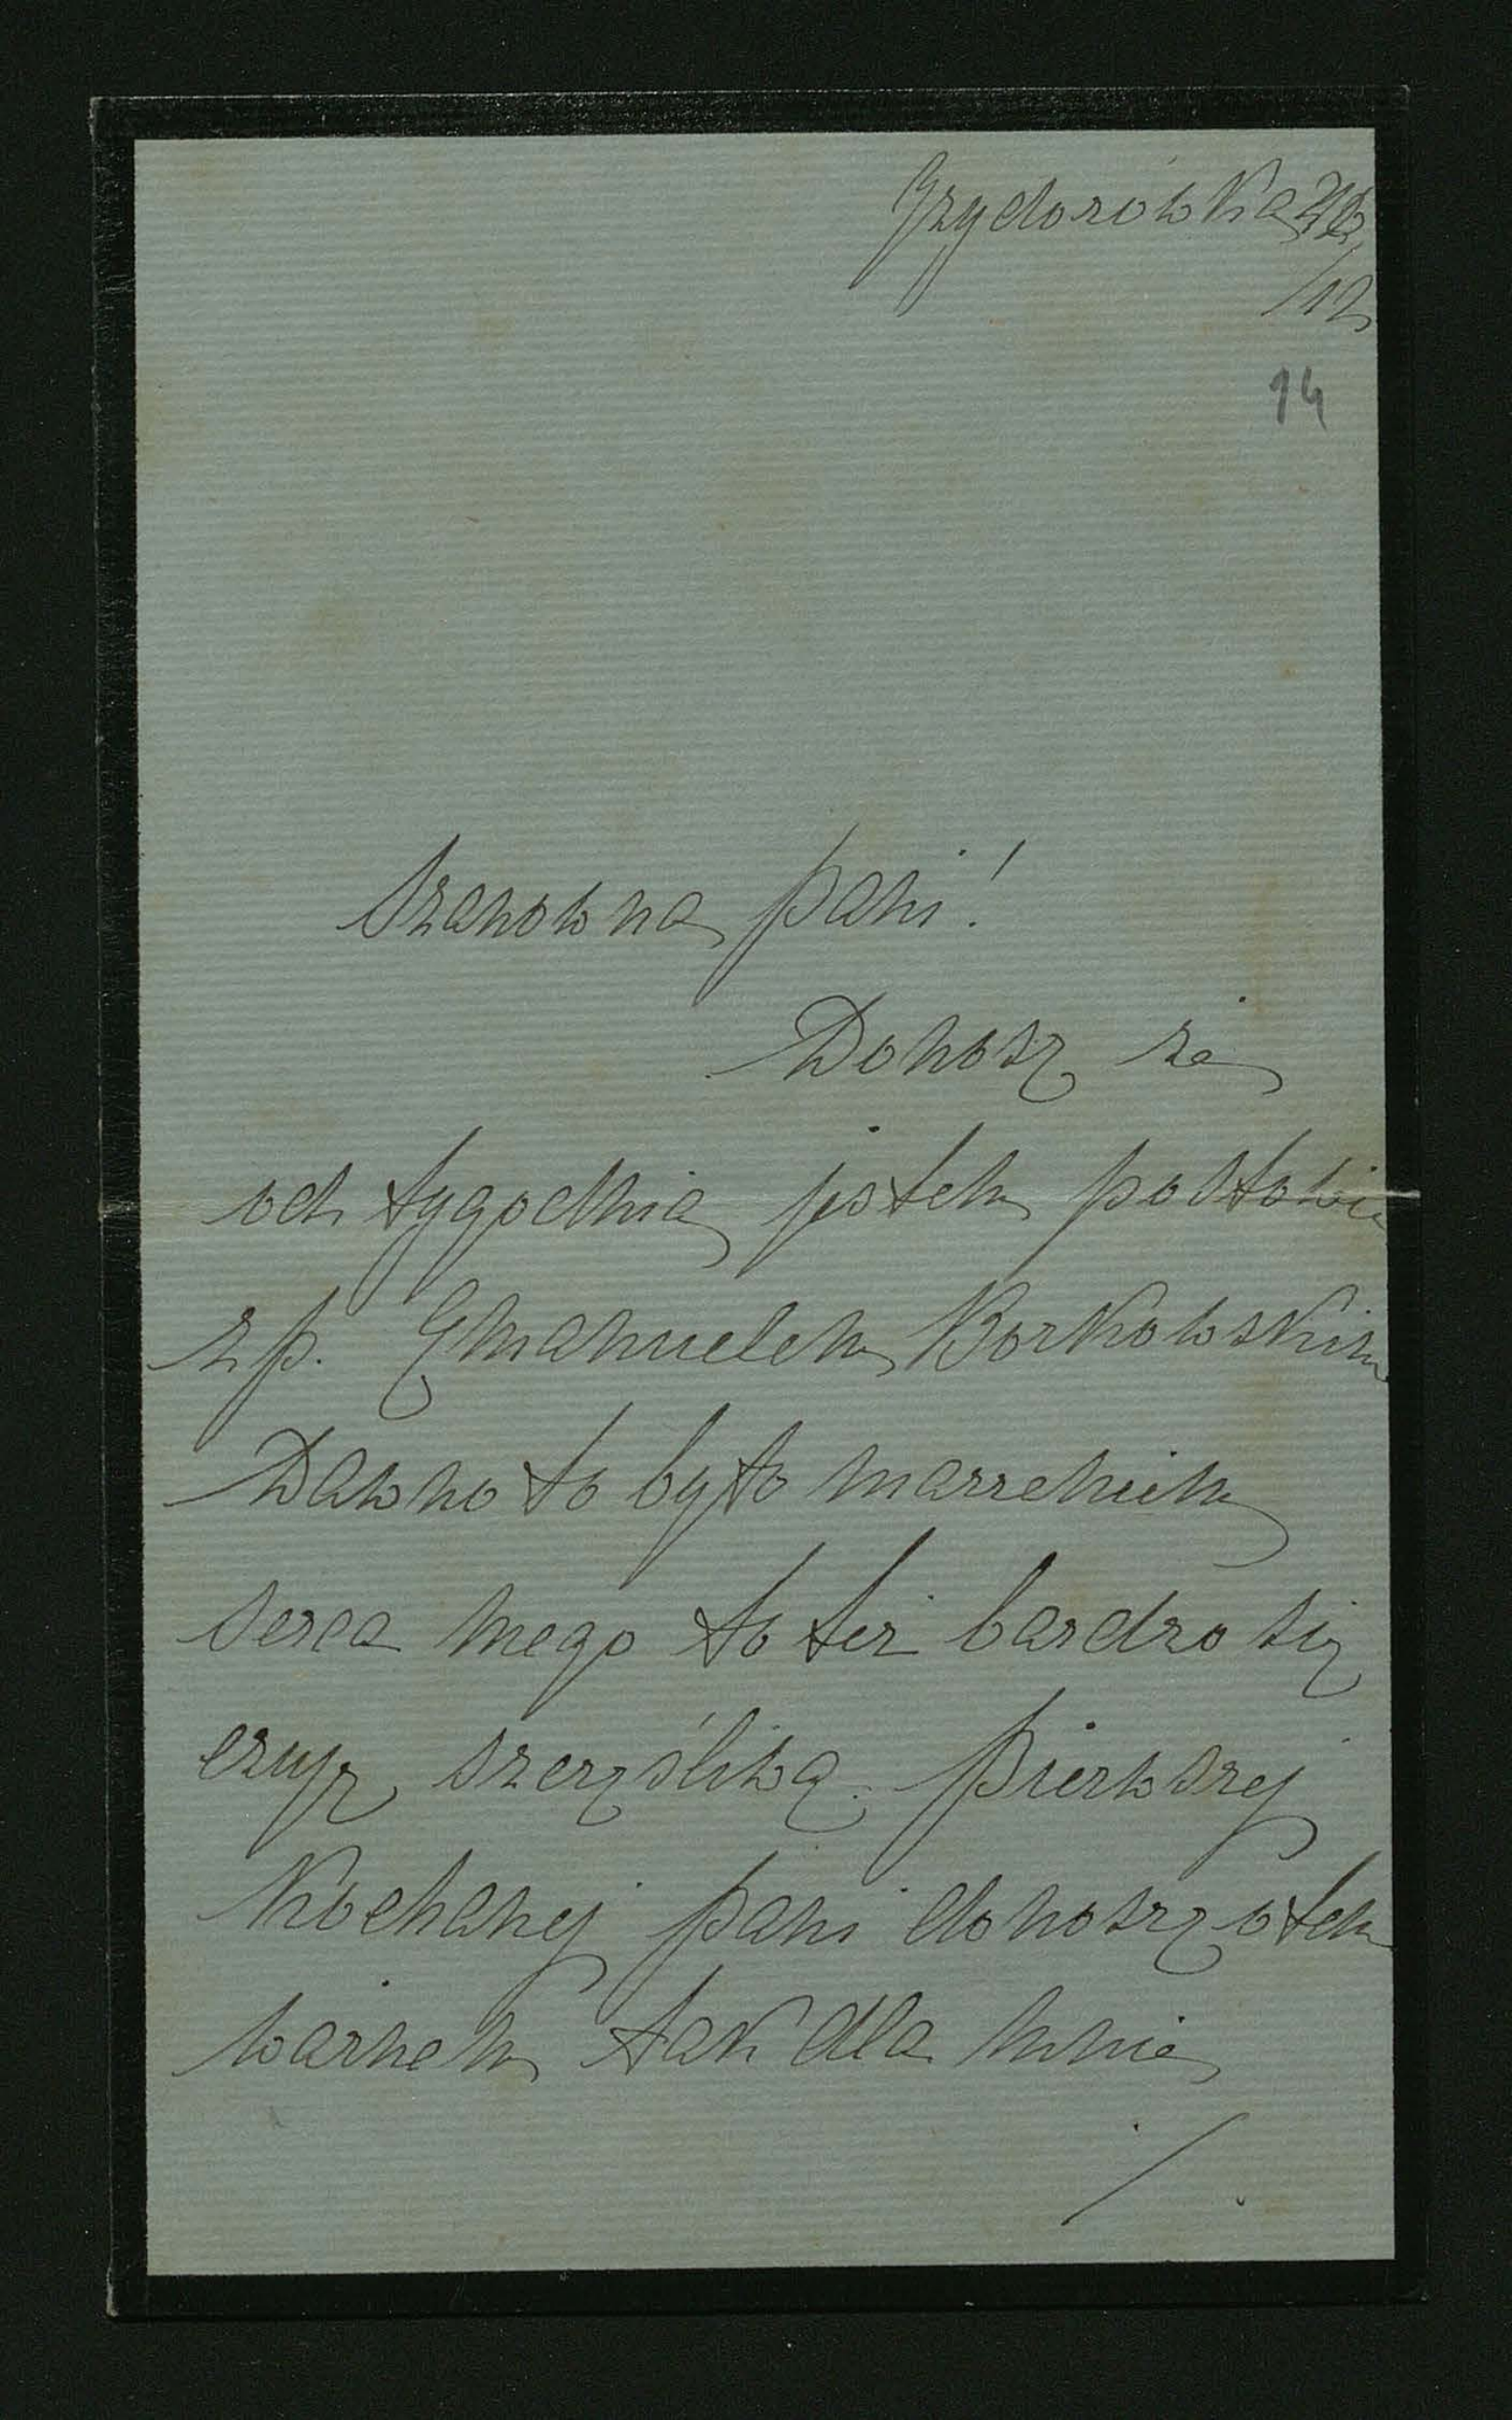 Izydorówka 26
/12
14
Szanowna pani!
Donosz że
od tygodnia jestem po słowie
z p. Emanuelem Borkowskim
Dawno to było marzeniem
serca mego to też bardzo się
czuję szczęśliwą. Pierwszej
Kochanej pani donoszę o tem
ważnem tak dla mnie
/.